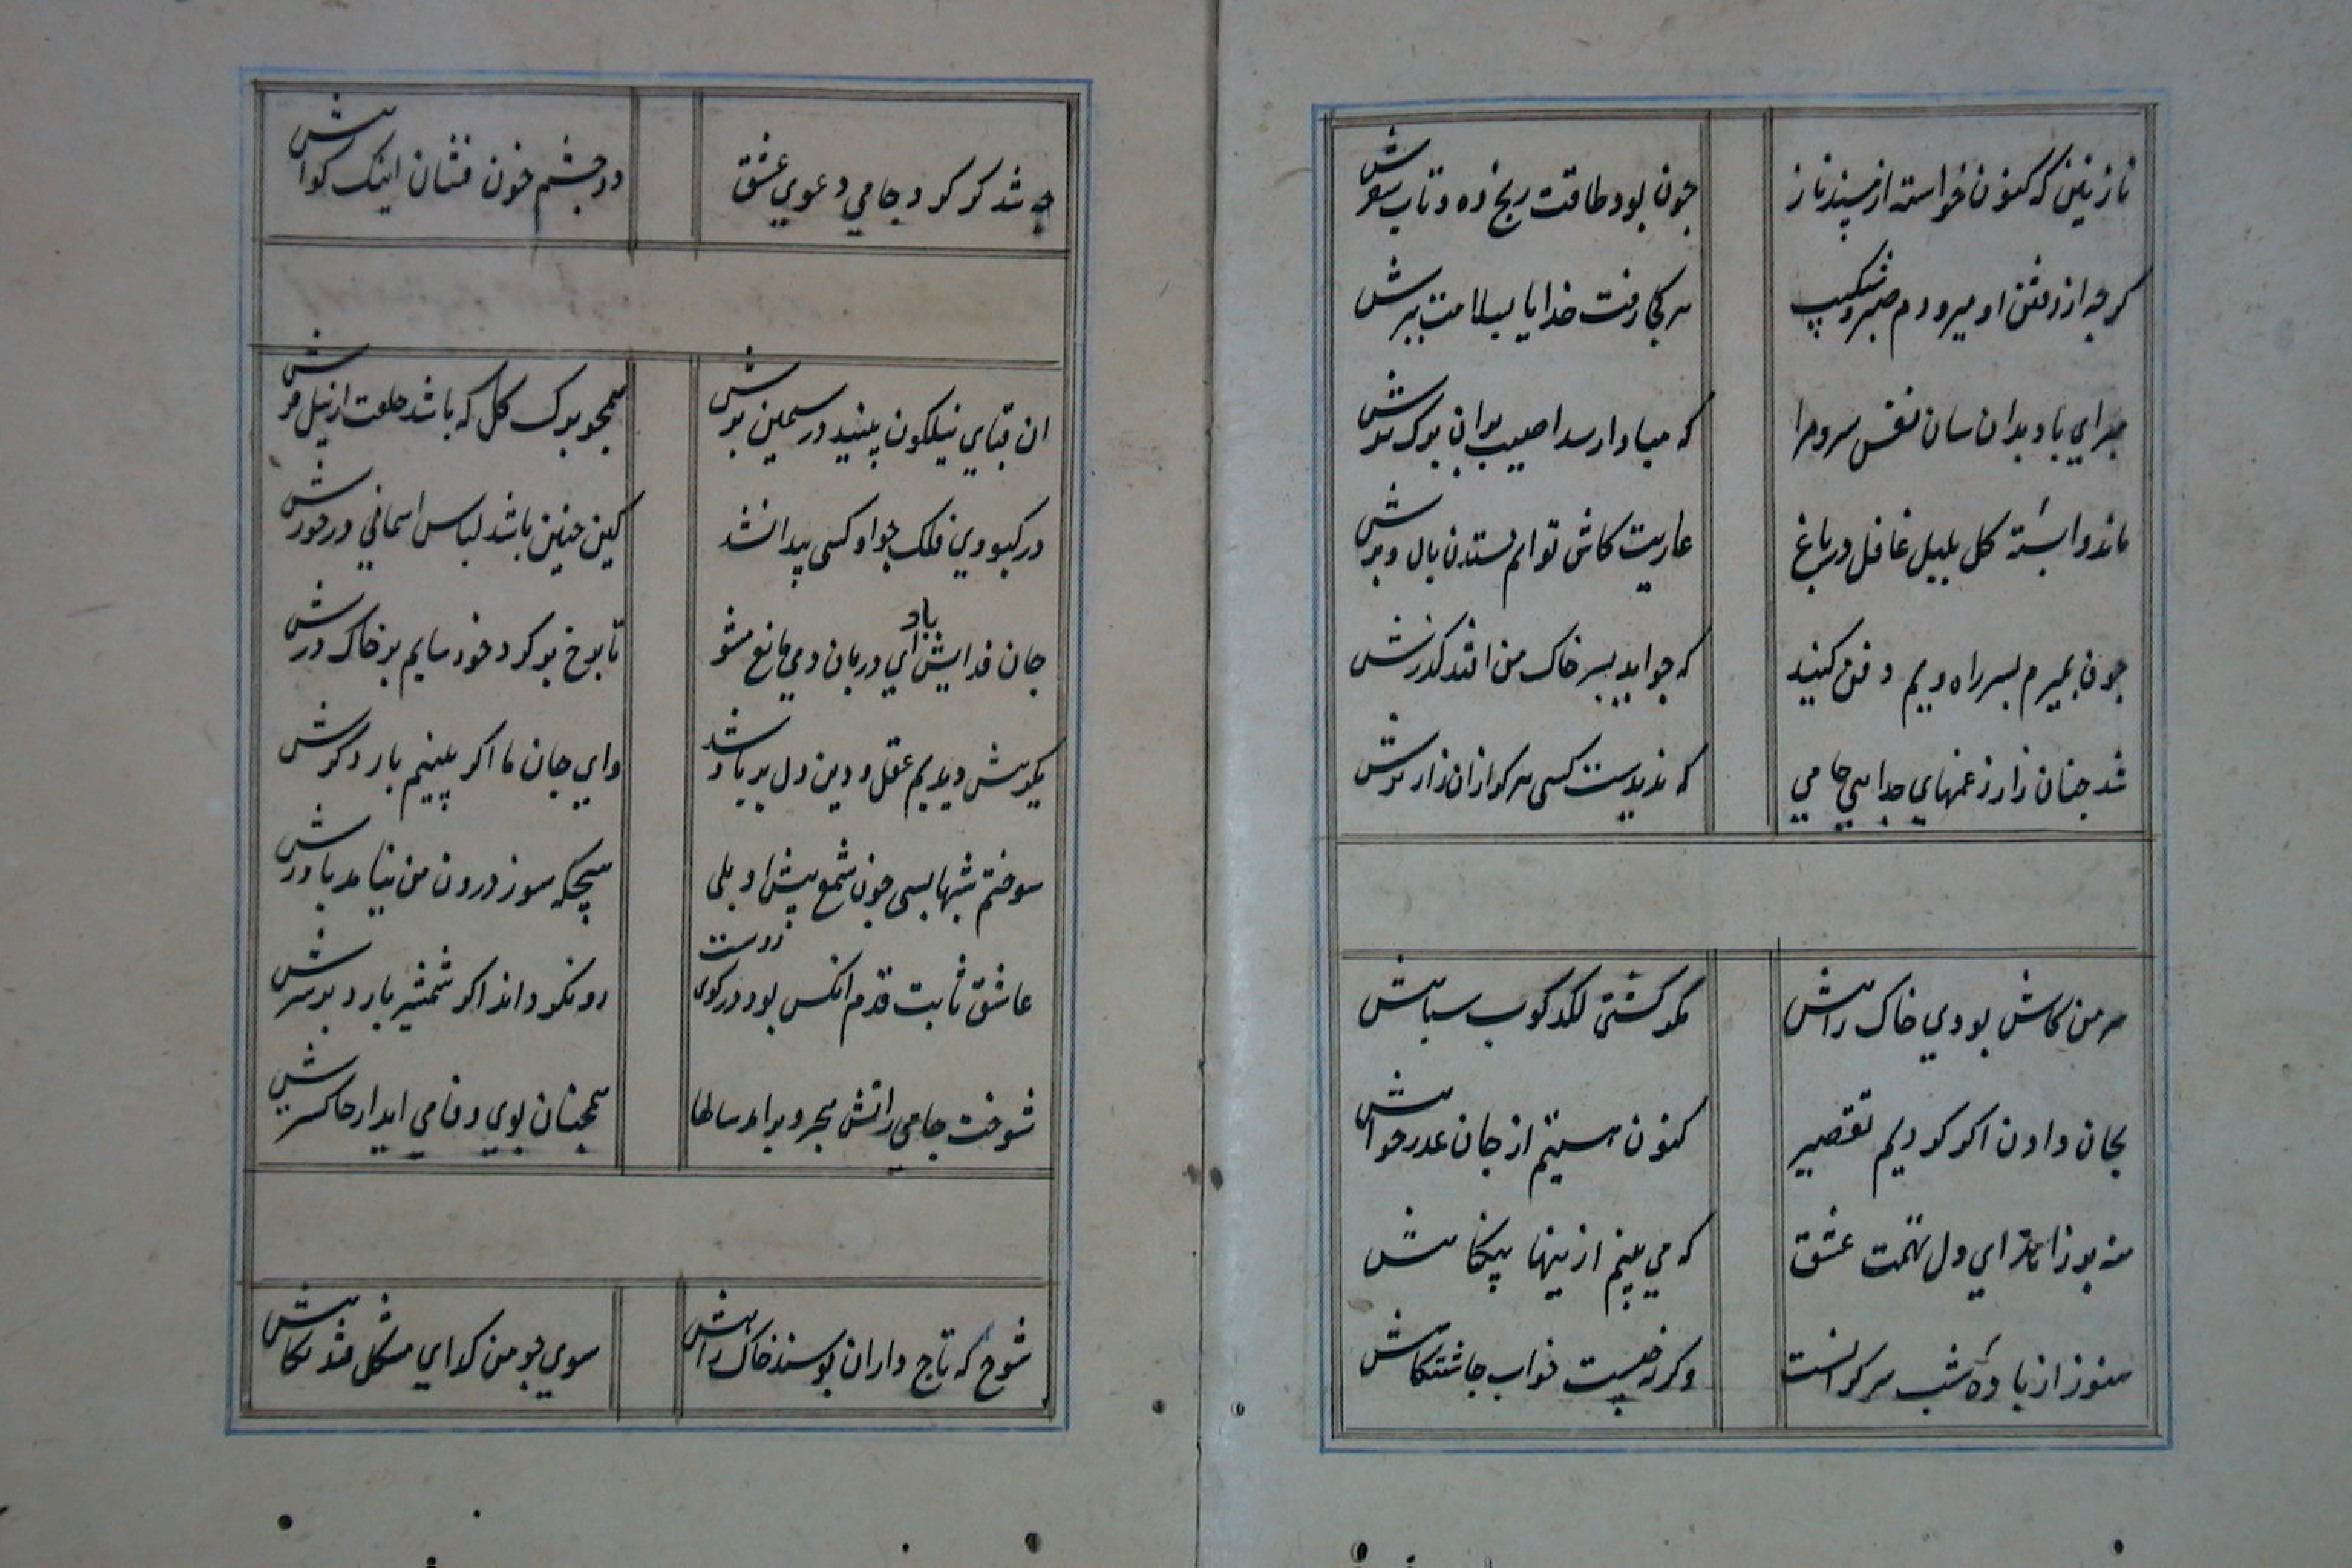 نازنینی که کنون خواسته از سیندناز چون بود طاقت رنج ره و تاب سفرش
کرچه از رفتن او میرودم صبر و شکیب هر کجا رفت خدایا بسلامت ببرش
مبر ای باد بدان سان نفس سرد مرا که مبادا رسد اسیب بران برک ترش
ماند وابسته کل بلبل غافل در باغ عاریت کاش توانم ستدن بال و پرش
چون بمیرم بسر راه ویم دفن کنید که چو اید بسر خاک من افتد کذرش
شد چنان زار ز غمهای جدایی جامی که ندیدست کسی هرکز ازان زارترش
سر من کاش بودی خاک راهش مکر کشتی لکدکوب سپاهش
بجان دادن اکر کردیم تقصیر کنون هستیم از جان عذرخواهش
منه بر زاهد ای دل تهمت عشق که می بینم ازینها بیکناهش
هنوز از باده شب سرکرانست وکرنه چیست خواب چاشتکاهش
چه شد کر کرد جامی دعوی عشق دو چشم خون فشان اینک کواهش
ان قبای نیلکون بینید در سیمین برش همچو برک کل که باشد خلعت از نیلوفرش
در کبودی فلک چو او کسی پیدا نشد کین چنین باشد لباس اسمانی درخورش
جان فدایش باد ای دربان دمی مانع مشو تا برخ بر کرد خود سایم بر خاک درش
یکرهش دیدیم عقل و دین و دل بر باد شد وای جان ما اکر بینیم بار دیکرش
سوختم شبها بسی چون شمع پیش او ولی هیچکه سوز درون من نیامد باورش
عاشق ثابت قدم انکس بود در کوی دوست رو نکرداند اکر شمشیر بارد بر سرش
سوخت جامی ز اتش هجر و براید سالها همچنان بوی وفا می اید از خاکسترش
شوخی که تاج داران بوسند خاک راهش سوی چو من کدای مشکل فتد نکاهش